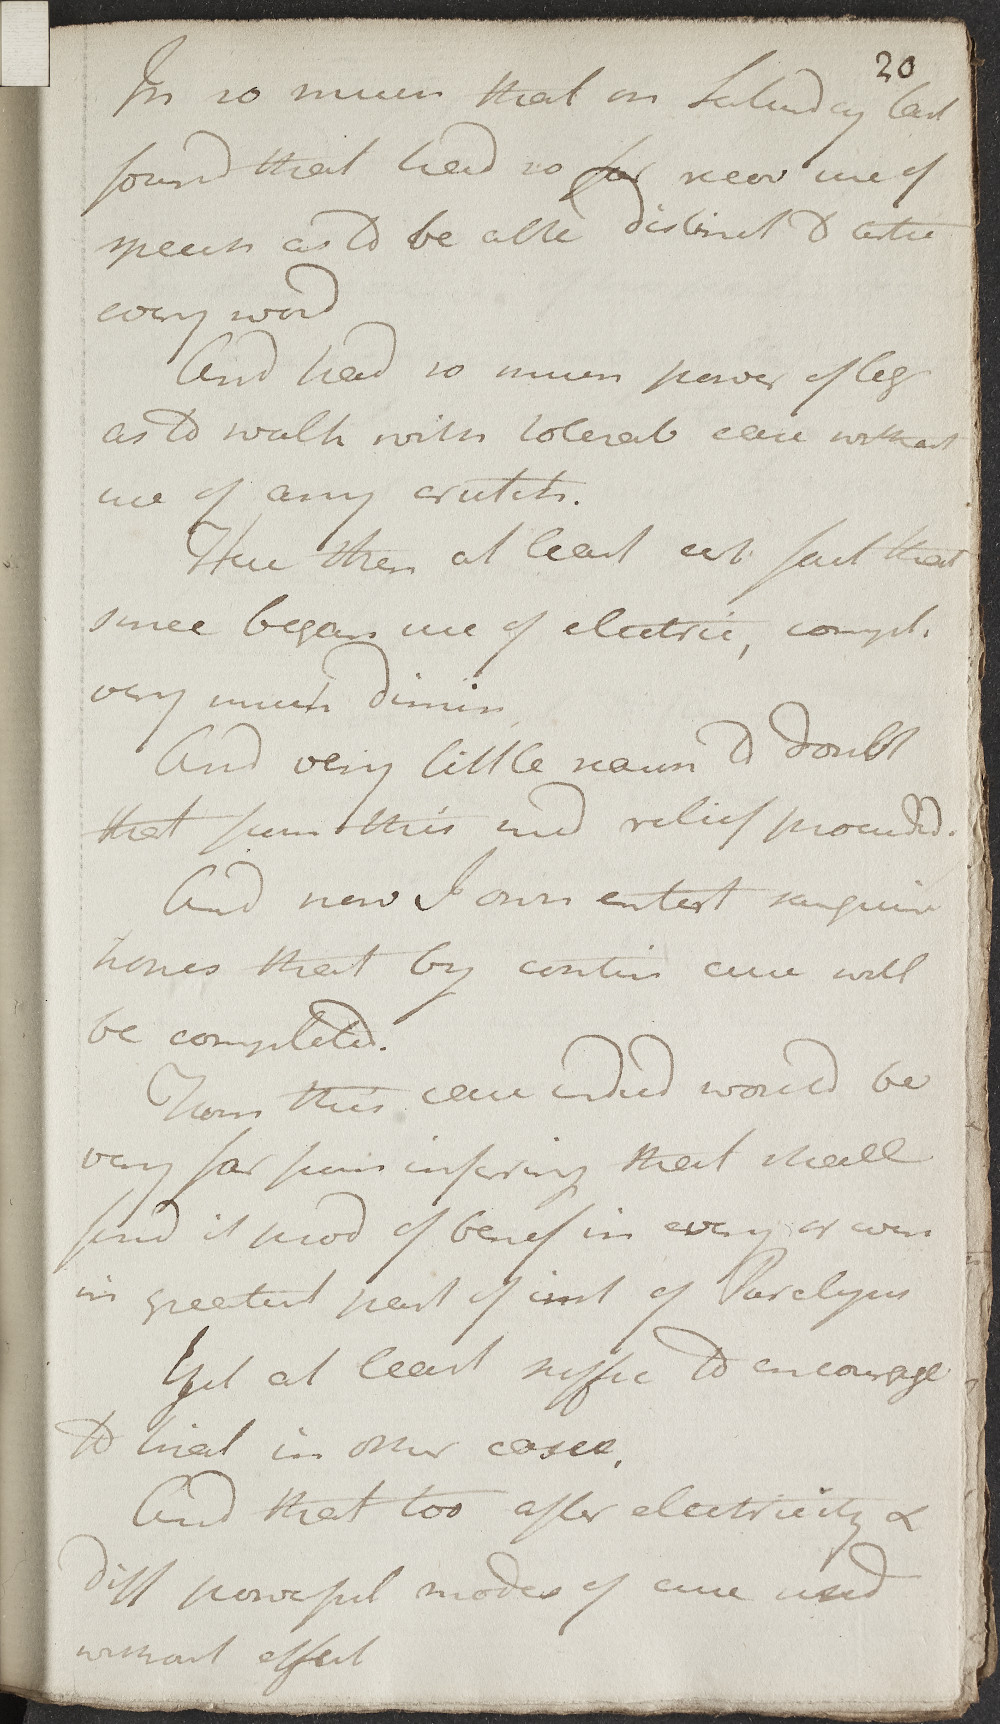 20
In so much that on Saturday last
found that had so far recov use of
speech as to be able distinct to artic
every word
And had so much power of leg
as to walk with tolerab ease without
use of any crutch.
Here then at least cert fact that
since began use of electric, compl.
very much dimin
And very little reason to doubt
that from this med relief proceeded.
And now I own entert sanguin
hopes that by contin cure will
be completed.
From this case indeed would be
very far from infering that shall
find it prod of benef in every or even
in greatest part of inst of Paralysis
Yet at least suffic to encourage
to trial in other cases.
And that too after electricity &
diff powerful modes of cure used
without effect